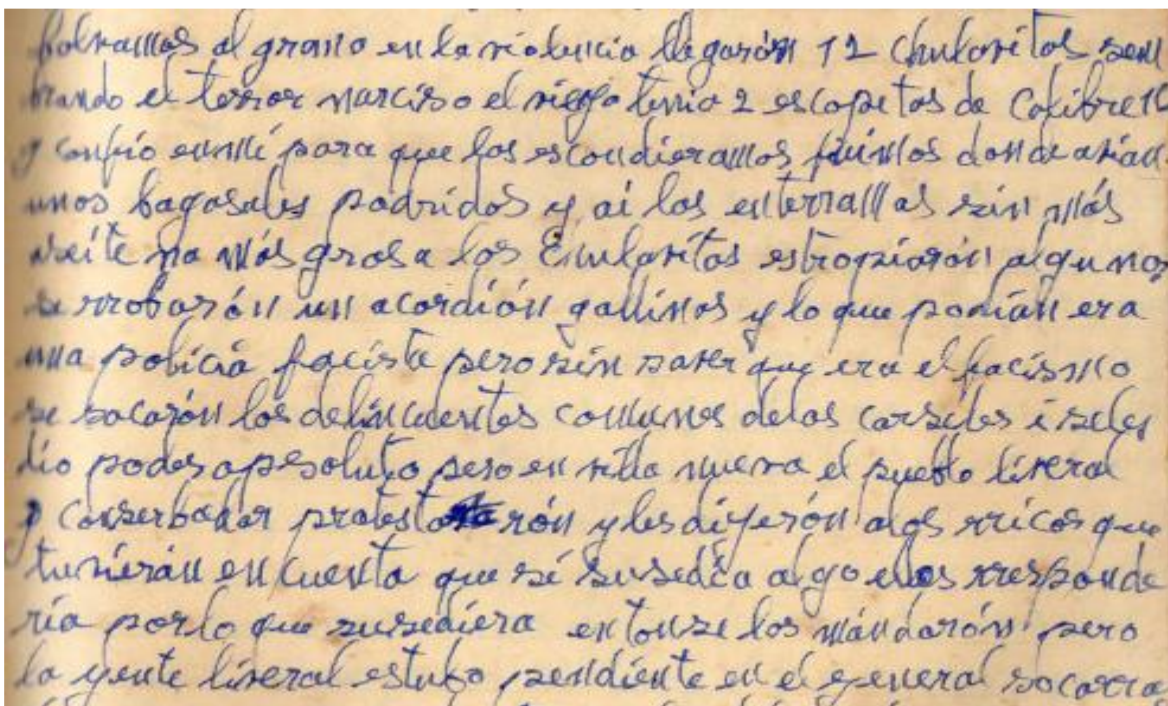 bolvamos al grano en la violencia llegarón 12 chulavitas sem
brando el terror narciso el viejo tenia 2 escopetas de Calibre 16
y confió enmí para que las escondieramos fuimos donde avian
unos bagasales podridos y ai las enterramos sin más
aseite na más grasa los Chulavitas estropiarón algunos
se rrobarón un acordión gallinas y lo que podian era
una policiá facista pero sin saver que era el facismo
se sacarón los delincuentes comunes delas carseles i seles
dio poder apsoluto pero en villa nueva el pueblo liveral
y conserbador protestarón y les dijerón alos rricos que
tuvierán en cuenta que sí susedia algo ellos rresponde
ria por lo que susediera entonse los mándarón pero
la gente liveral estubo pendiente en el general socarra